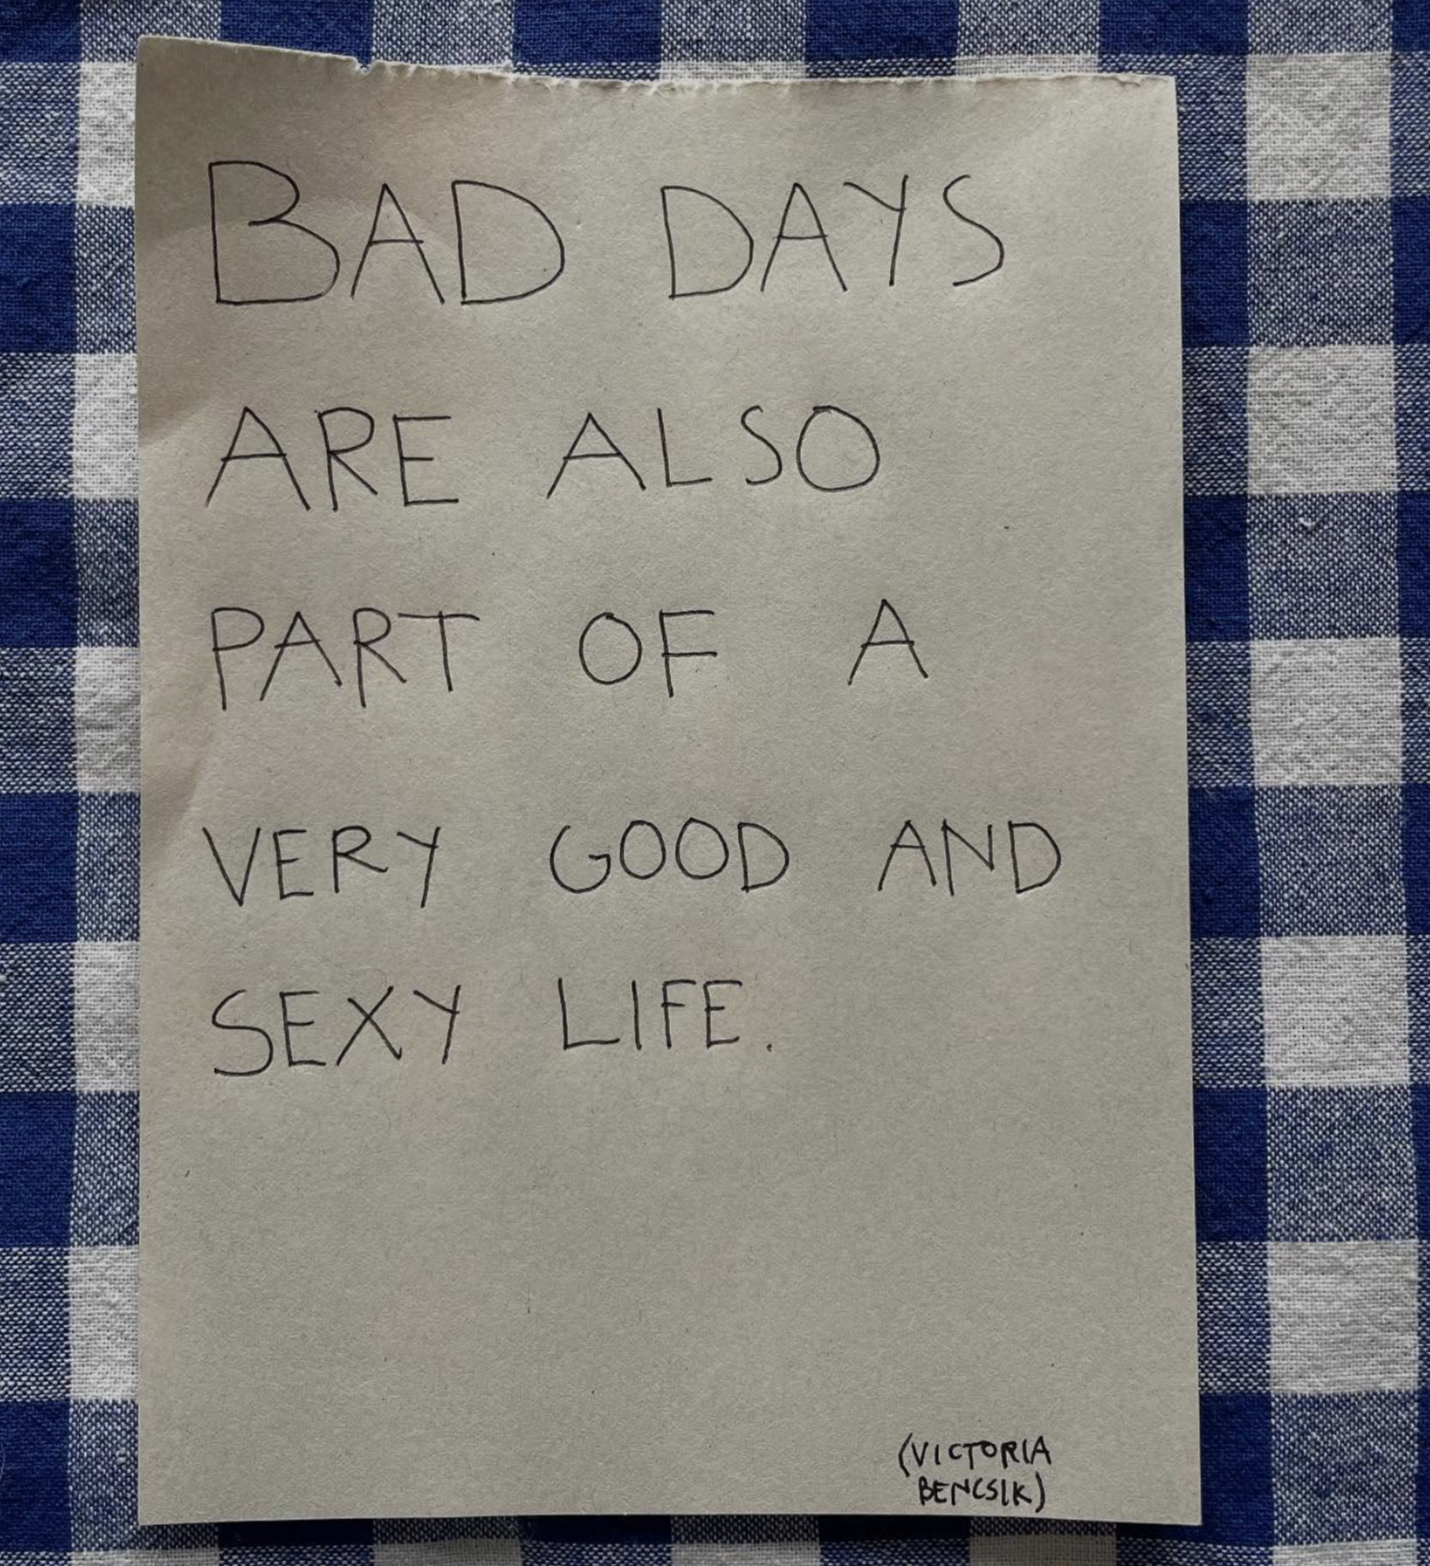 BAD DAYS
ARE ALSO
PART OF A
VERY GOOD AND
SEXY LIFE.
(VICTORIA
BENCSIK)